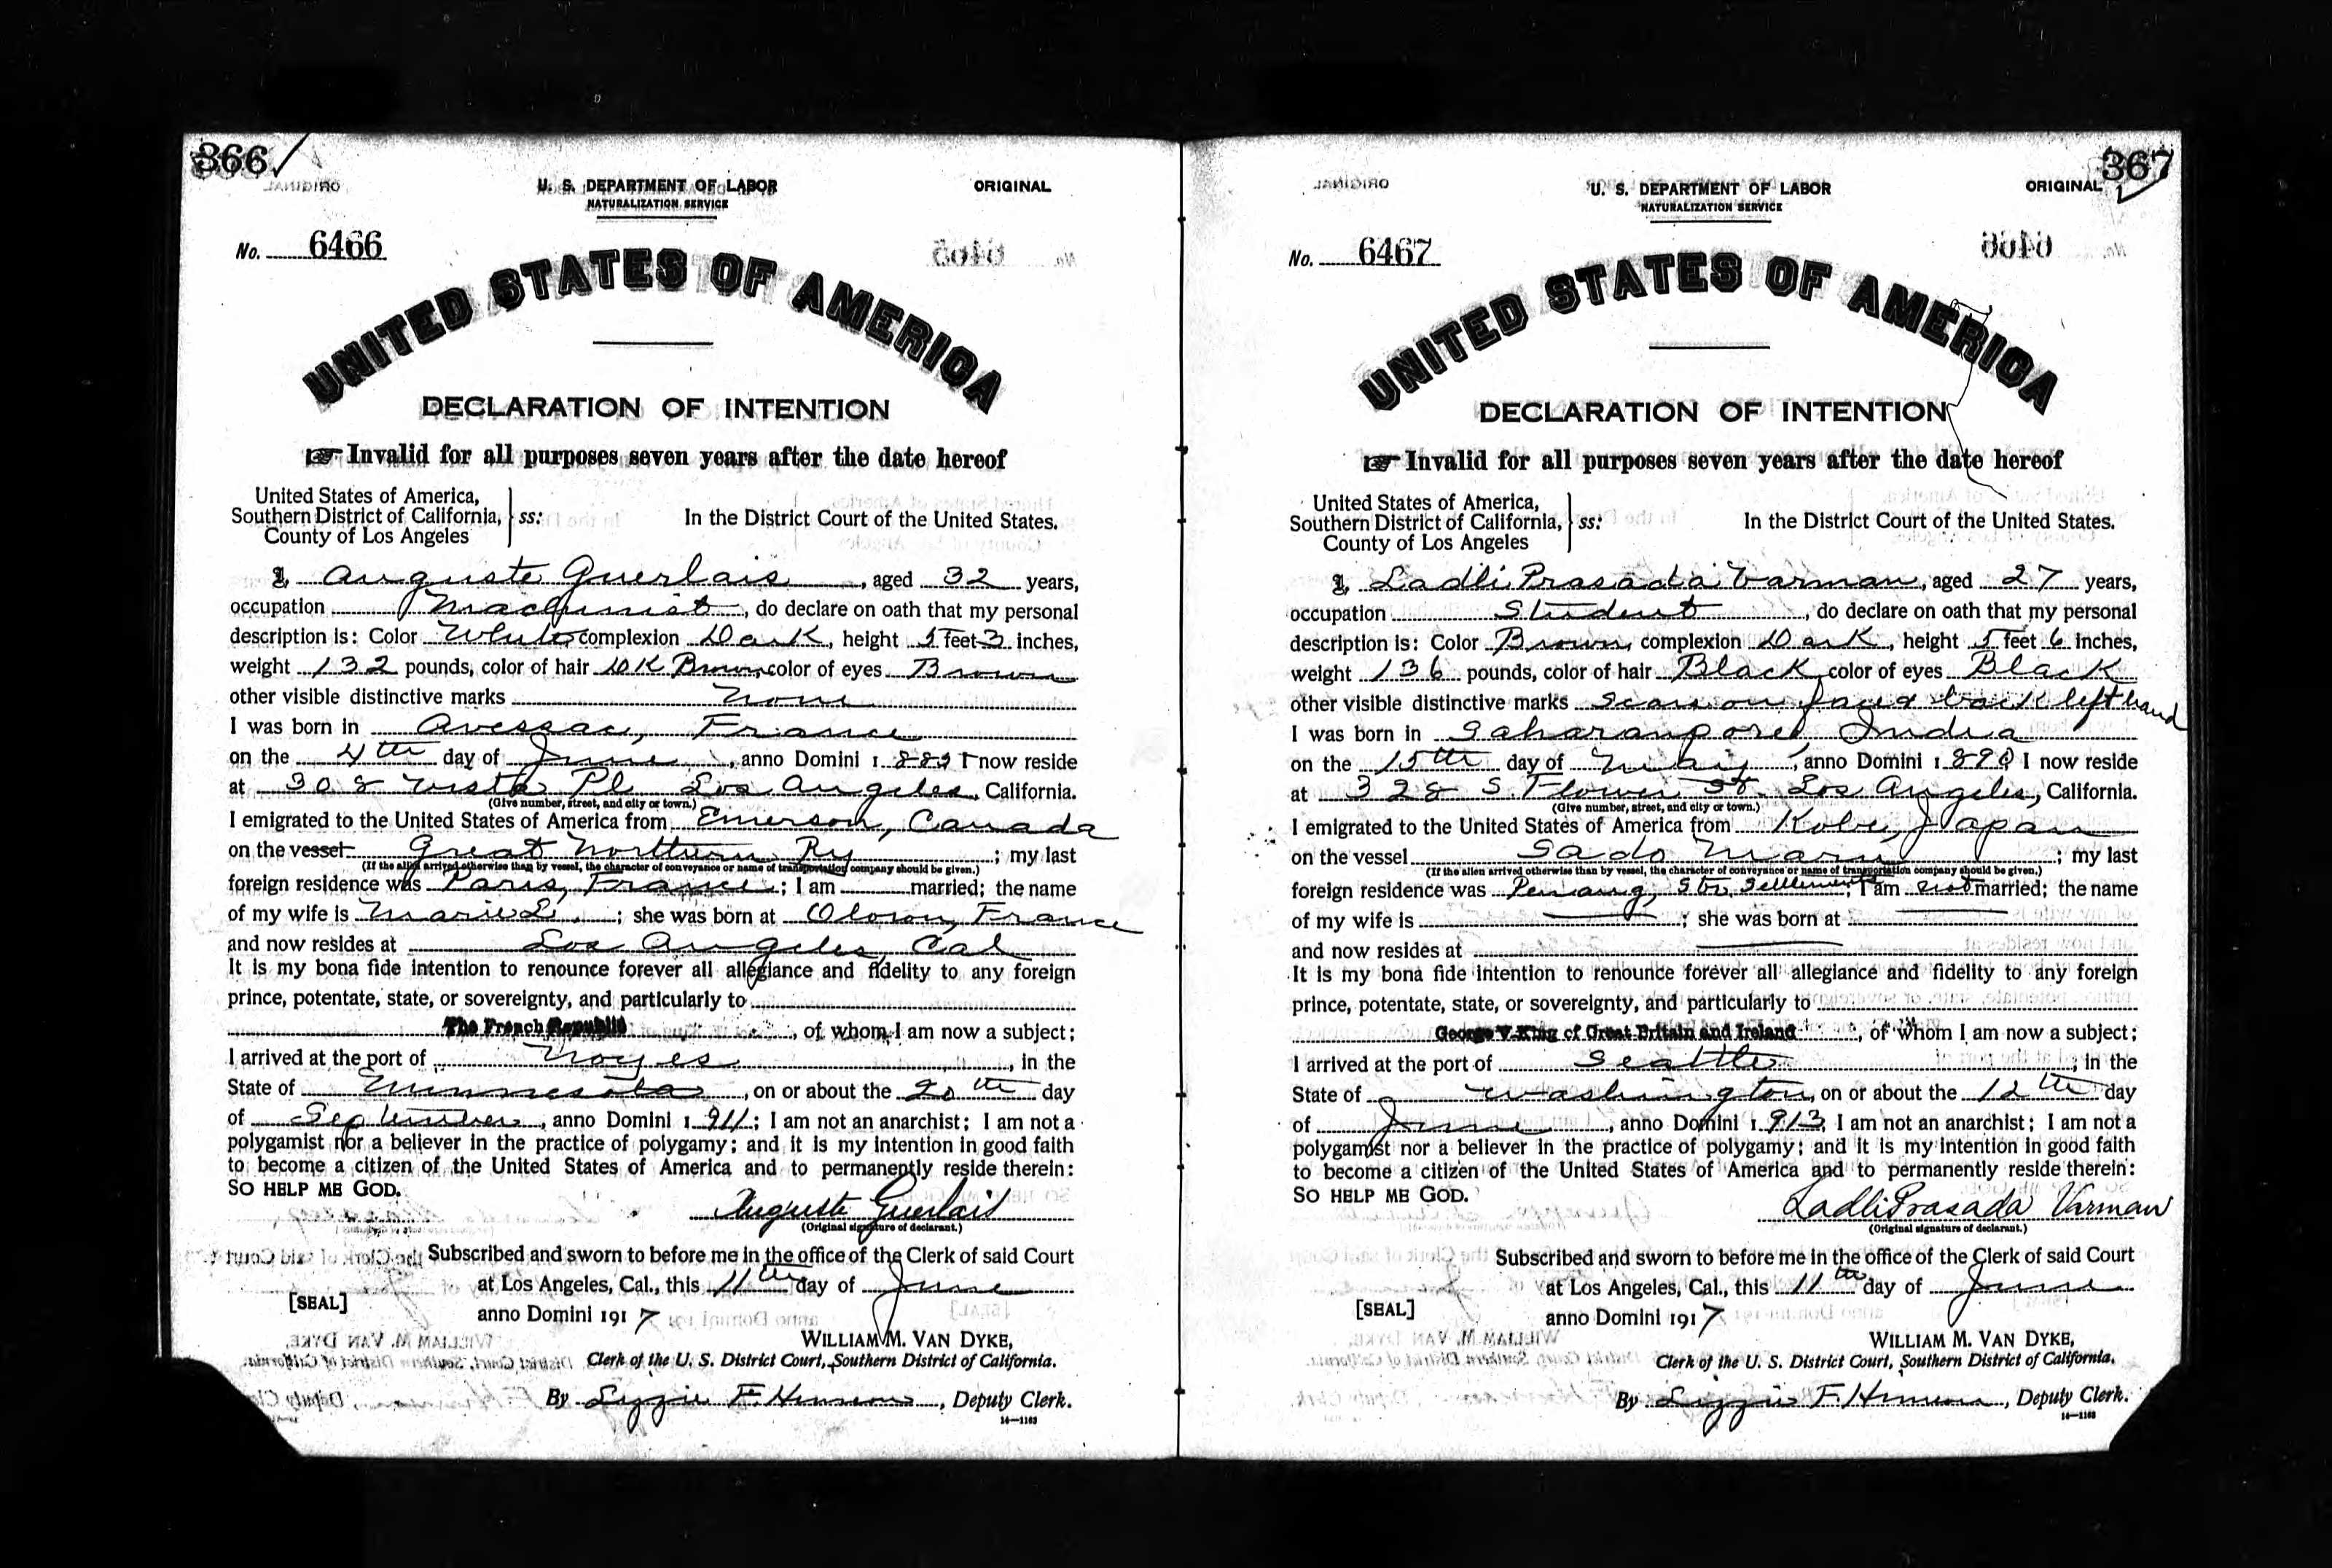 366
U. S. DEPARTMENT OF LABOR ORIGINAL
NATURALIZATION SERVICE
No. 6466
UNITED STATES OF AMERICA
DECLARATION OF INTENTION
☞ Invalid for all purposes seven years after the date hereof
United States of America,
Southern District of California, } ss: In the District Court of the United States.
County of Los Angeles
I, Auguste Guerlais, aged 32 years,
occupation Machinist, do declare on oath that my personal
description is: Color White, complexion Dark, height 5 feet 3 inches,
weight 132 pounds, color of hair DK Brown, color of eyes Brown
other visible distinctive marks None
I was born in Avessac, France
on the 4th day of June, anno Domini 1885 I now reside
at 308 Vista Pl Los Angeles, California.
(Give number, street, and city or town.)
I emigrated to the United States of America from Emerson, Canada
on the vessel Great Northern Ry; my last
(If the alien arrived otherwise than by vessel, the character of conveyance or name of transportation company should be given.)
foreign residence was Paris, France; I am married; the name
of my wife is Marie L.; she was born at Oloron, France
and now resides at Los Angeles, Cal
It is my bona fide intention to renounce forever all allegiance and fidelity to any foreign
prince, potentate, state, or sovereignty, and particularly to
The French Republic, of whom I am now a subject;
I arrived at the port of Noyes, in the
State of Minnesota, on or about the 20th day
of September, anno Domini 1911; I am not an anarchist; I am not a
polygamist nor a believer in the practice of polygamy; and it is my intention in good faith
to become a citizen of the United States of America and to permanently reside therein:
SO HELP ME GOD.
Auguste Guerlais
(Original signature of declarant.)
Subscribed and sworn to before me in the office of the Clerk of said Court
at Los Angeles, Cal., this 11th day of June
[SEAL] anno Domini 1917
WILLIAM M. VAN DYKE,
Clerk of the U. S. District Court, Southern District of California.
By Lizzie F., Deputy Clerk.
14—1163
367
U. S. DEPARTMENT OF LABOR ORIGINAL
NATURALIZATION SERVICE
No. 6467
UNITED STATES OF AMERICA
DECLARATION OF INTENTION
☞ Invalid for all purposes seven years after the date hereof
United States of America,
Southern District of California, } ss: In the District Court of the United States.
County of Los Angeles
I, Ladli Prasada Varman, aged 27 years,
occupation Student, do declare on oath that my personal
description is: Color Brown, complexion Dark, height 5 feet 6 inches,
weight 136 pounds, color of hair Black, color of eyes Black
other visible distinctive marks scars on face & back left hand
I was born in Saharanpore, India
on the 15th day of May, anno Domini 1890 I now reside
at 328 S. Flower St. Los Angeles, California.
(Give number, street, and city or town.)
I emigrated to the United States of America from Kobe, Japan
on the vessel Sado Maru; my last
(If the alien arrived otherwise than by vessel, the character of conveyance or name of transportation company should be given.)
foreign residence was Penang, Str. Settlements; I am not married; the name
of my wife is ; she was born at
and now resides at
It is my bona fide intention to renounce forever all allegiance and fidelity to any foreign
prince, potentate, state, or sovereignty, and particularly to
George V King of Great Britain and Ireland, of whom I am now a subject;
I arrived at the port of Seattle, in the
State of Washington, on or about the 12th day
of June, anno Domini 1913, I am not an anarchist; I am not a
polygamist nor a believer in the practice of polygamy; and it is my intention in good faith
to become a citizen of the United States of America and to permanently reside therein:
SO HELP ME GOD.
Ladli Prasada Varman
(Original signature of declarant.)
Subscribed and sworn to before me in the office of the Clerk of said Court
at Los Angeles, Cal., this 11th day of June
[SEAL] anno Domini 1917
WILLIAM M. VAN DYKE,
Clerk of the U. S. District Court, Southern District of California.
By Lizzie F., Deputy Clerk.
14—1163